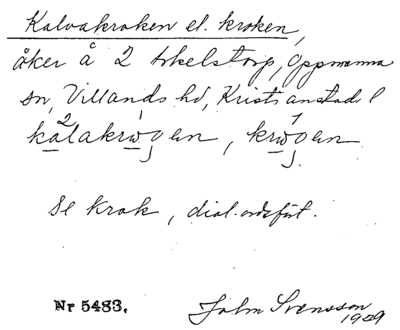 Kalvakroken el. kroken,
åker å 2 Arkelstorp, Oppmanna
sn, Villands hd, Kristianstads l
se krok, dial.ordsfört.
Nr 5483.
John Svensson
1929